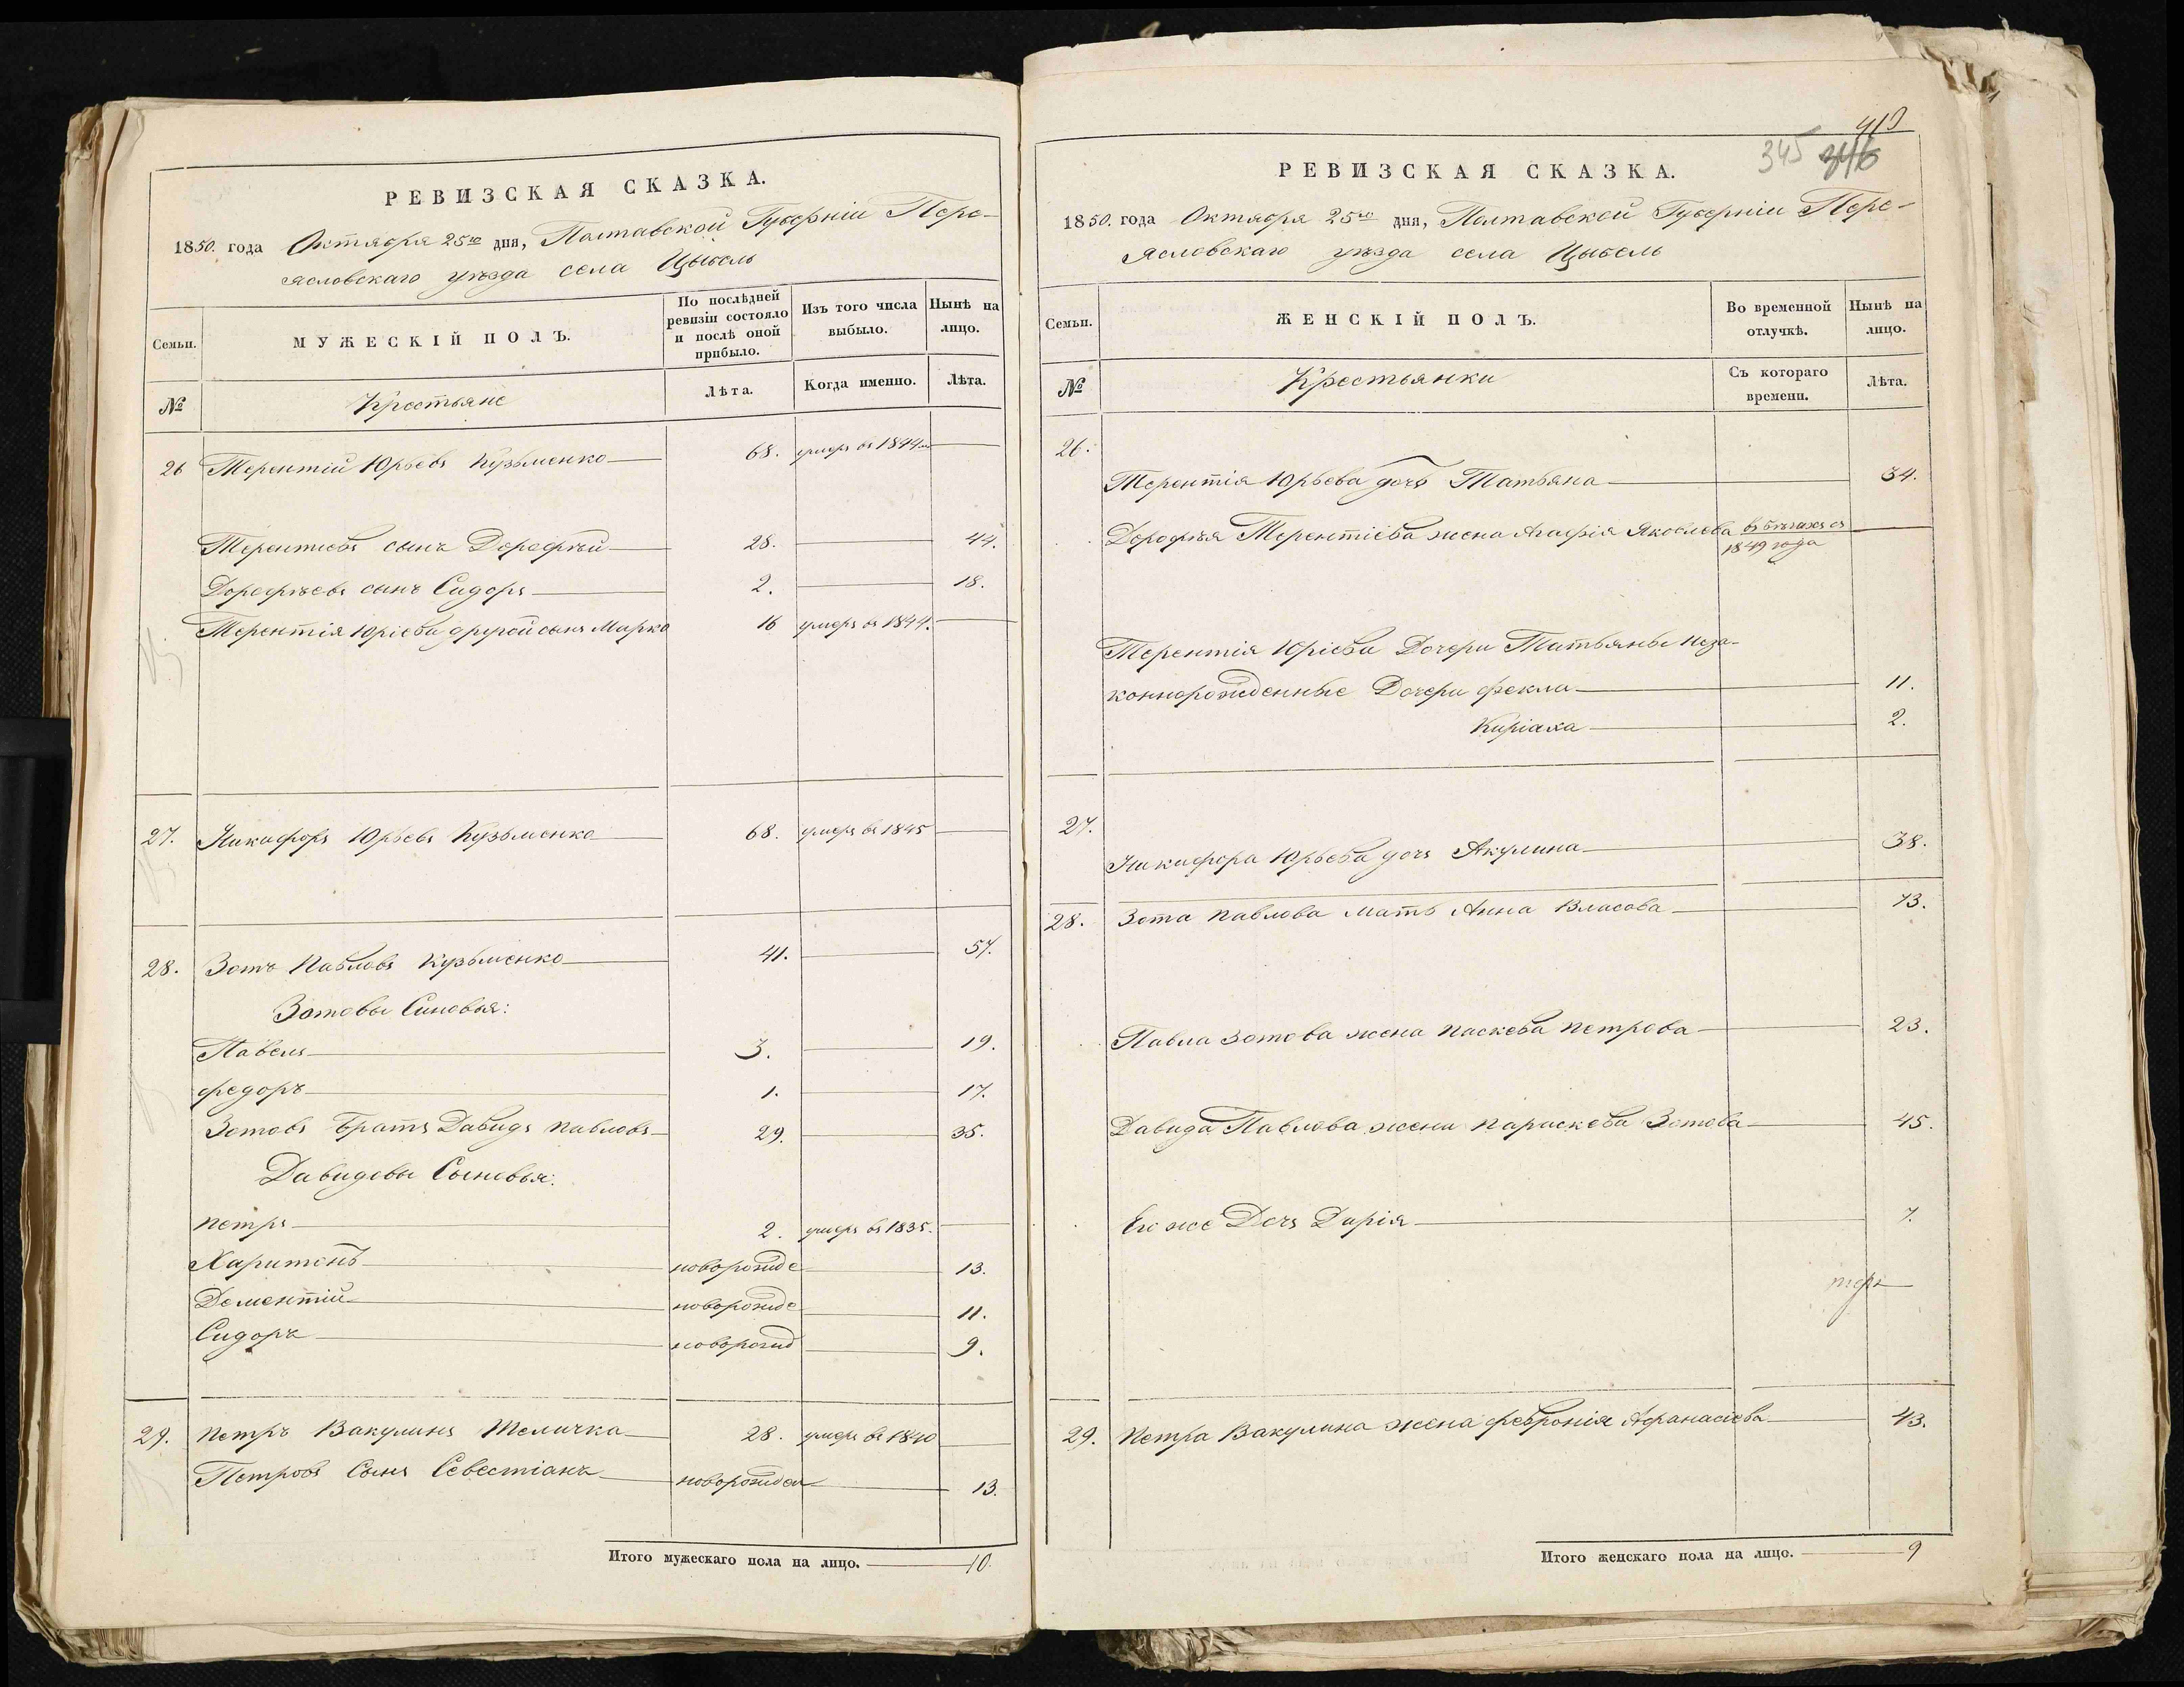 РЕВИЗСКАЯ СКАЗКА.
1850. года Октября 25го дня, Полтавской Губерніи Пере-
ясловскаго уѣзда села Цыбель
Семьи.
МУЖЕСКІЙ ПОЛЪ.
По послѣдней ревизіи состояло и послѣ оной прибыло.
Изъ того числа выбыло.
Нынѣ на лицо.
№
Крестьяне
Лѣта.
Когда именно.
Лѣта.
26 Терентій Юрьевъ Кузьменко 68. умеръ въ 1844м
Терентиевъ сынъ Дорофѣй 28. 44.
Дорофѣевъ сынъ Сидоръ 2. 18.
Терентія Юріева другой сынъ Марко 16 умеръ въ 1844.
27. Никифоръ Юрьевъ Кузьменко 68. умеръ въ 1845
28. Зотъ Павловъ Кузьменко 41. 57.
Зотовы Синовья:
Павелъ 3. 19.
Федоръ 1. 17.
Зотовъ Братъ Давидъ Павловъ 29. 35.
Давидовы Сыновья:
Петръ 2. умеръ въ 1835.
Харитонъ новорожде 13.
Дементій новорожде 11.
Сидоръ новорожд 9.
29. Петръ Вакулинъ Теличка 28. умеръ въ 1840
Петровъ Сынъ Севестіанъ новорожден 13.
Итого мужескаго пола на лицо. 10.
413
345 346
РЕВИЗСКАЯ СКАЗКА.
1850. года Октября 25го дня, Полтавской Губерніи Пере-
ясловскаго уѣзда села Цыбель
Семьи.
ЖЕНСКІЙ ПОЛЪ.
Во временной отлучкѣ.
Нынѣ на лицо.
№
Крестьянки
Съ котораго времени.
Лѣта.
26.
Терентія Юрьева дочь Татьяна 34.
Дорофѣя Терентіева жена Агафія Яковлева въ бѣгахъ съ
1849 года
Терентія Юріева Дочери Татьяны неза-
коннорожденные Дочери Фекла 11.
Киріаха 2.
27.
Никифора Юрьева дочь Акулина 38.
28. Зота Павлова Мать Анна Власова 73.
Павла Зотова жена Паскева Петрова 23.
Давида Павлова жена Параскева Зотова 45.
Его же Дочь Дарія 7.
29. Петра Вакулина жена Февронія Афанасіева 43.
Итого женскаго пола на лицо. 9